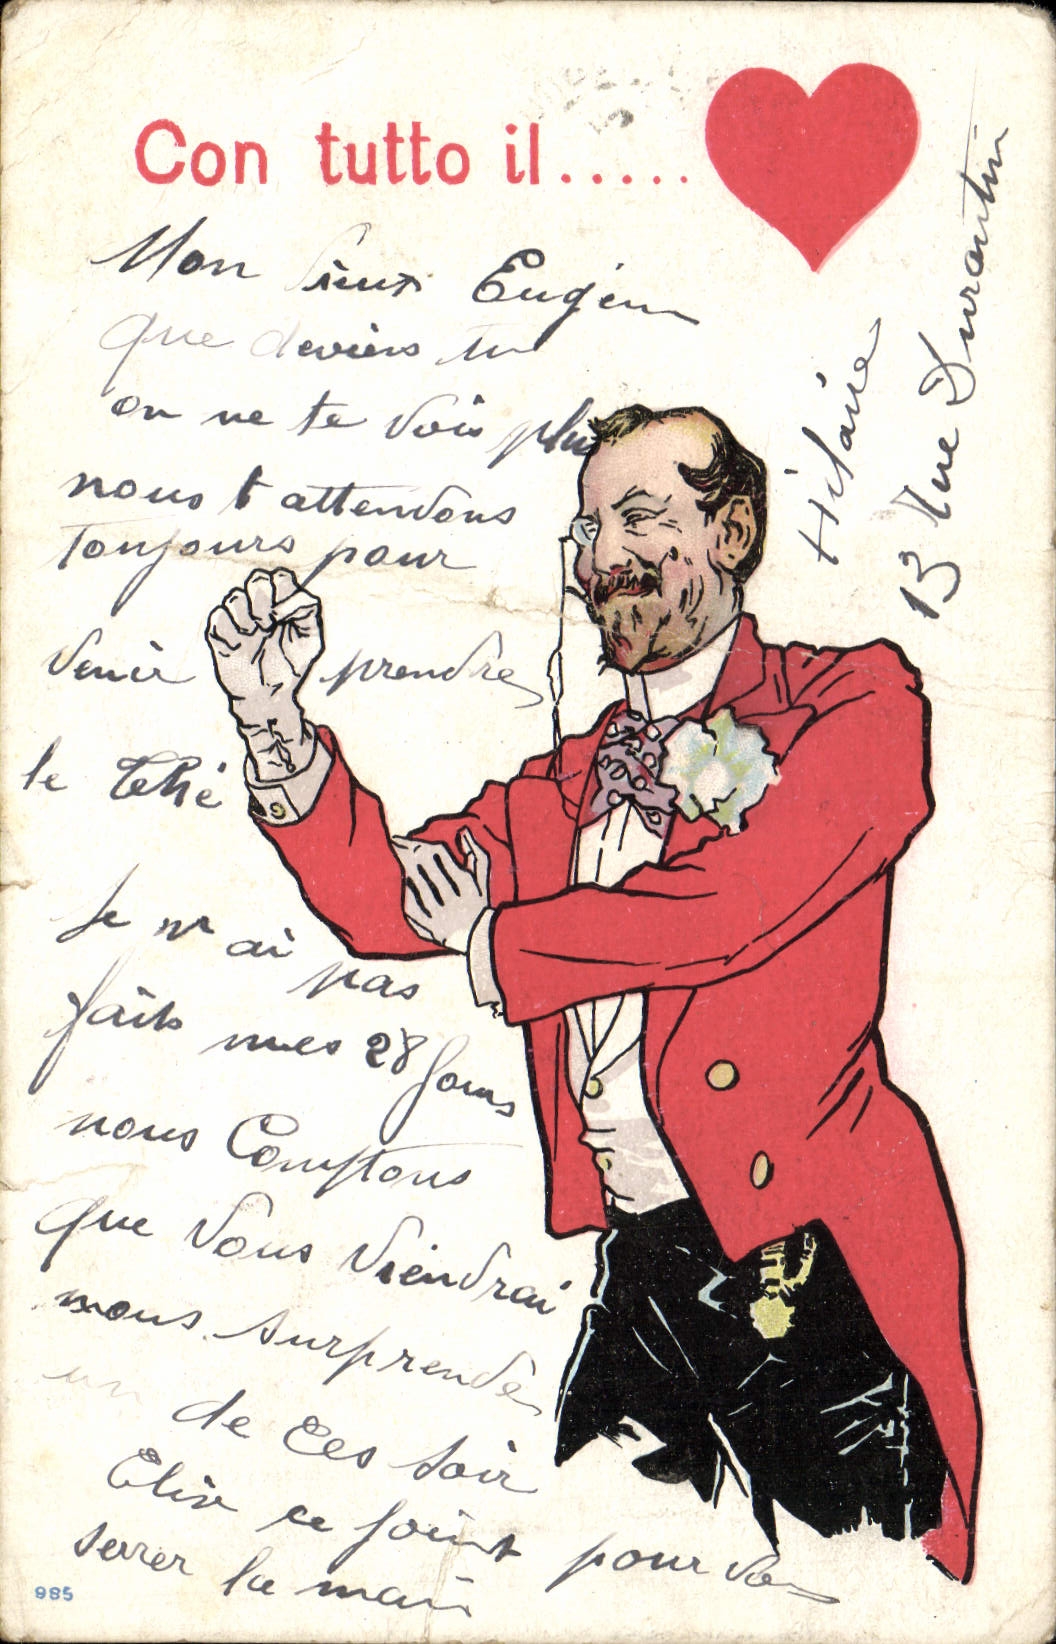 Con tutto il.....
Mon vieux Eugène
que deviens tu
on ne te vois plus
nous t attendons
Toujours pour
venir prendre
le thé
Je n ai pas
faits mes 28 Jours
nous Comptons
que vous viendrai
nous surprendre
un de ces soir
se joint pour
serrer la main
Hilaire
13 Rue Durantin
985